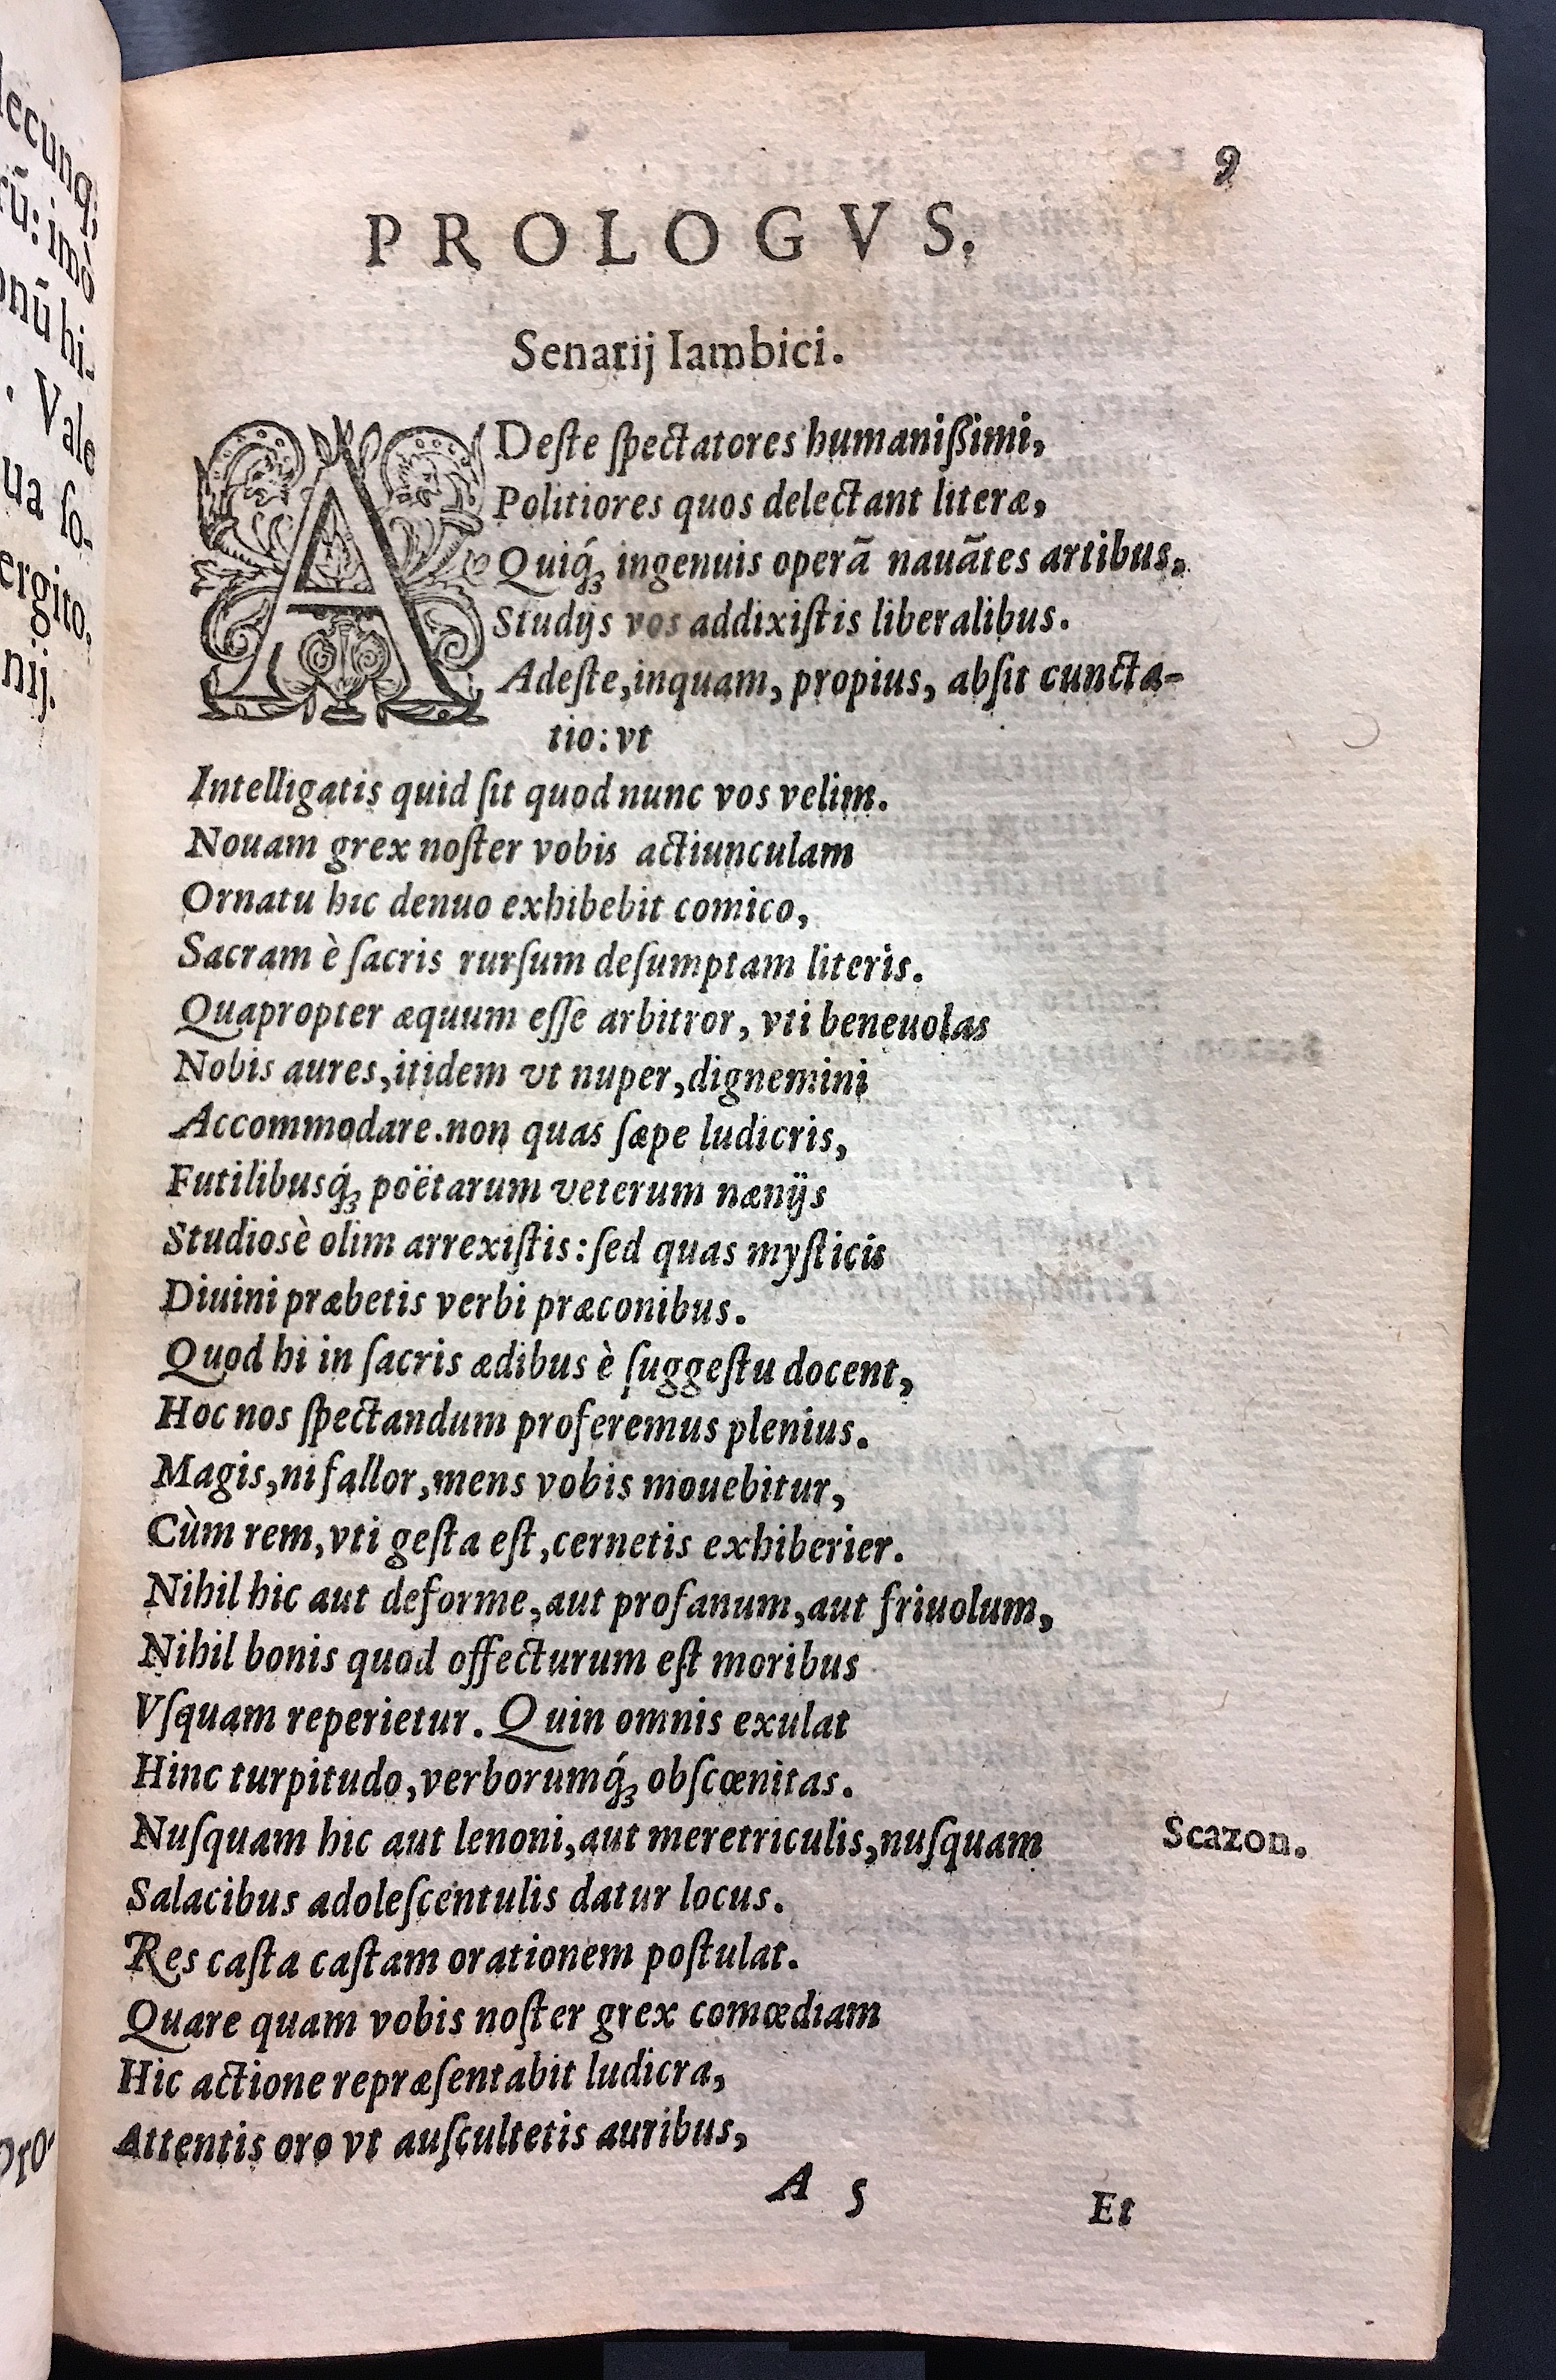 lecunq;
rū: imò
onū hi-
. Vale
ua ſo-
ergito,
nij.
pro-
9
PROLOGVS.
Senarij Iambici.
ADeſte ſpectatores humanißimi,
Politiores quos delectant literæ,
Quiq́ꝫ ingenuis operā nauātes artibus,
Studijs vos addixiſtis liberalibus.
Adeſte,inquam, propius, abſit cuncta-
tio: vt
Intelligatis quid ſit quod nunc vos velim.
Nouam grex noſter vobis actiunculam
Ornatu hic denuo exhibebit comico,
Sacram è ſacris rurſum deſumptam literis.
Quapropter æquum eſſe arbitror, vti beneuolas
Nobis aures,itidem vt nuper,dignemini
Accommodare.non quas ſæpe ludicris,
Futilibusq́ꝫ poëtarum veterum nænijs
Studiosè olim arrexiſtis: ſed quas myſticis
Diuini præbetis verbi præconibus.
Quod hi in ſacris ædibus è ſuggeſtu docent,
Hoc nos ſpectandum proferemus plenius.
Magis,ni fallor,mens vobis mouebitur,
Cùm rem,vti geſta eſt,cernetis exhiberier.
Nihil hic aut deforme,aut profanum,aut friuolum,
Nihil bonis quod offecturum eſt moribus
Vſquam reperietur. Quin omnis exulat
Hinc turpitudo,verborumq́ꝫ obſcœnitas.
Nuſquam hic aut lenoni,aut meretriculis,nuſquam Scazon.
Salacibus adoleſcentulis datur locus.
Res caſta caſtam orationem poſtulat.
Quare quam vobis noſter grex comœdiam
Hic actione repræſentabit ludicra,
Attentis oro vt auſcultetis auribus,
A 5 Et